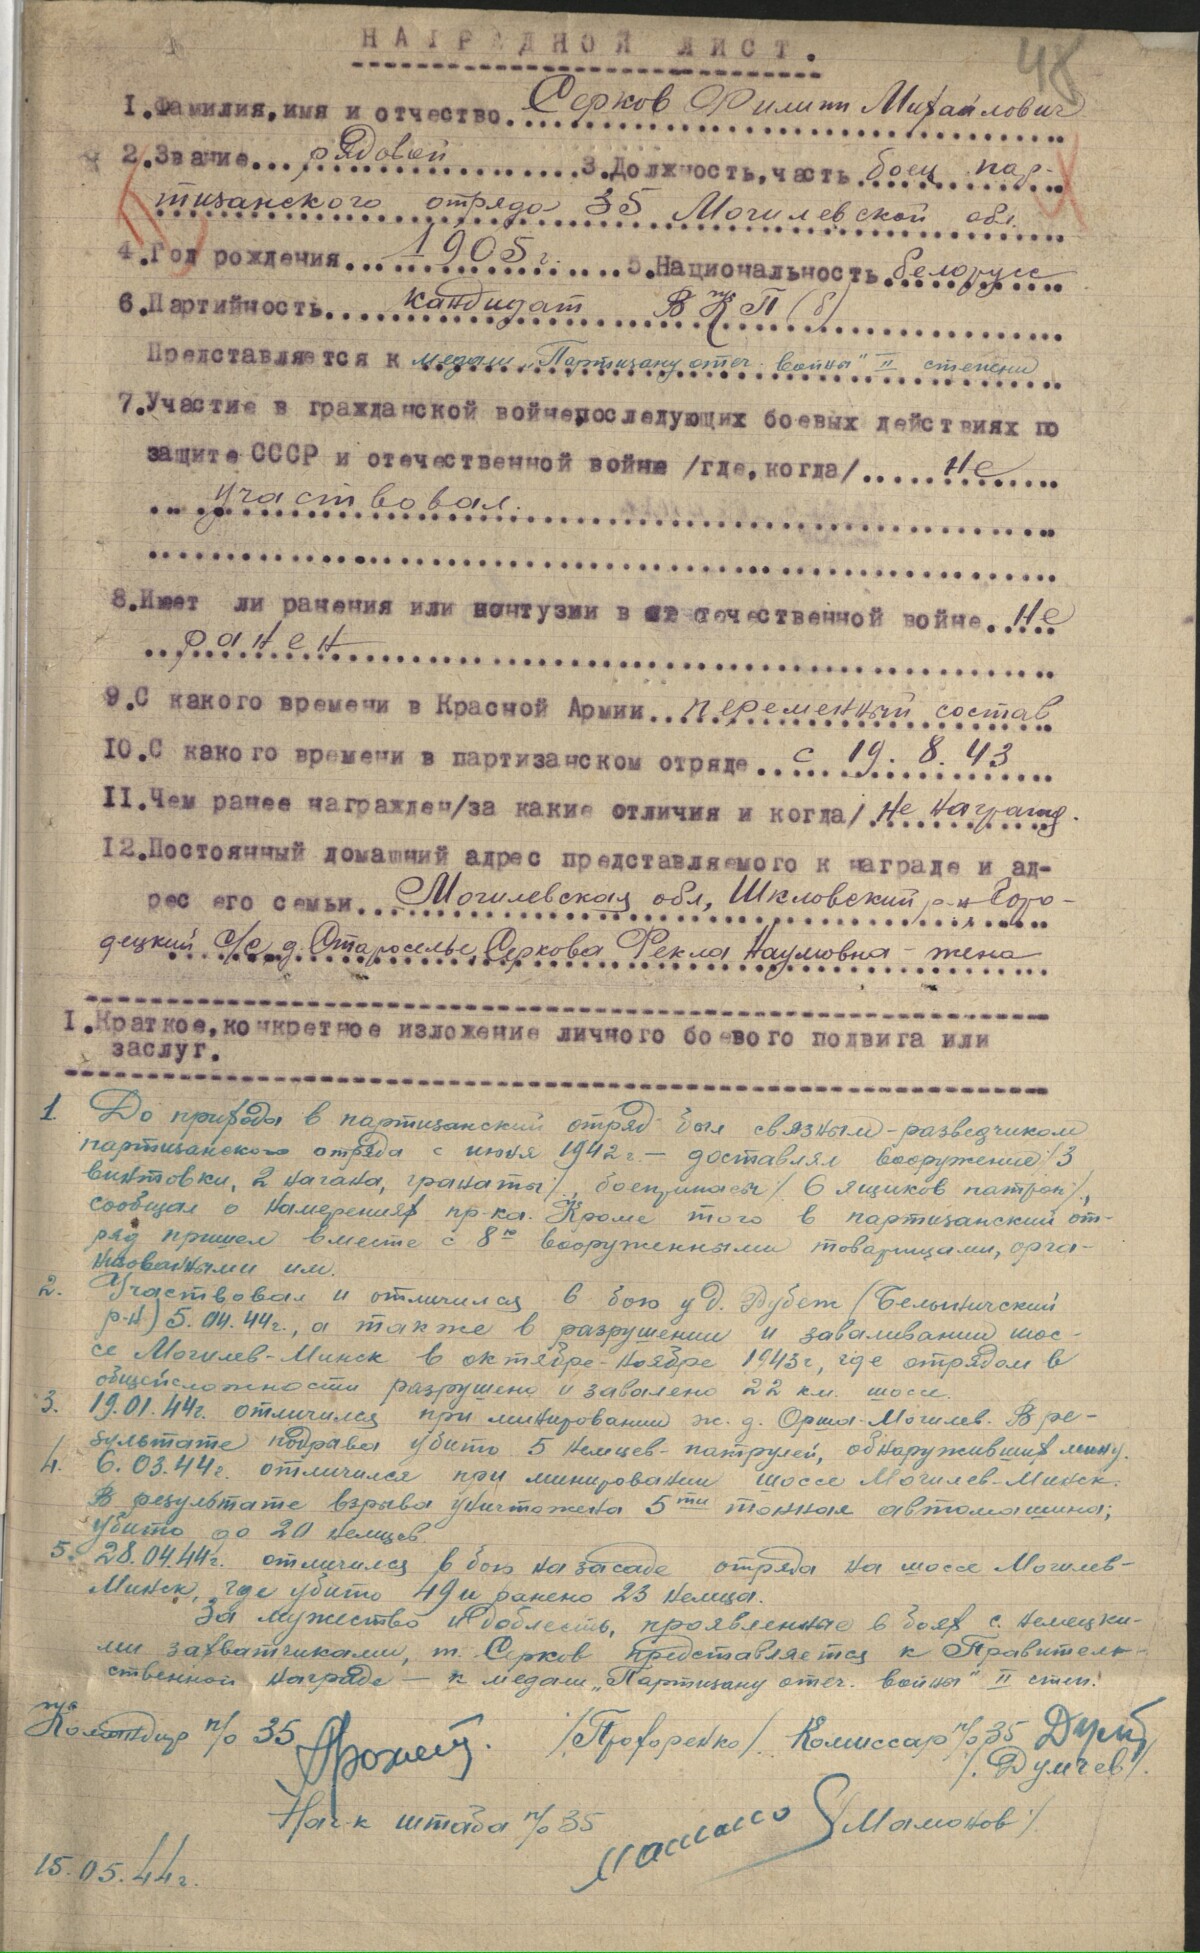 НАГРАДНОЙ ЛИСТ.
48
1.Фамилия,имя и отчество. Серков Филипп Михайлович
2.Звание... рядовой 3.Должность,часть боец пар-
тизанского отряда 35 Могилевской обл.
4.Год рождения... 1905 г. 5.Национальность белорусс
6.Партийность... кандидат ВКП(б)
Представляется к медали „Партизану отеч. войны" II степени
7.Участие в гражданской войне,последующих боевых действиях по
защите СССР и отечественной войне /где,когда/..... не
участвовал.
8.Имеет ли ранения или контузии в отечественной войне. не
ранен
9.С какого времени в Красной Армии.. переменный состав
10.С какого времени в партизанском отряде.. с 19.8.43
11.Чем ранее награжден/за какие отличия и когда/ не награжд.
12.Постоянный домашний адрес представляемого к награде и ад-
рес его семьи.. Могилевская обл, Шкловский р-н Горо-
децкий с/с д. Староселье, Серкова Фекла Наумовна - жена
I.Краткое,конкретное изложение личного боевого подвига или
заслуг.
1. До прихода в партизанский отряд был связным-разведчиком
партизанского отряда с июня 1942 г. — доставлял вооружение /3
винтовки, 2 нагана, гранаты/, боеприпасы /6 ящиков патрон/,
сообщал о намерениях пр-ка. Кроме того в партизанский от-
ряд пришел вместе с 8ю вооруженными товарищами, орга-
низованными им.
2. Участвовал и отличился в бою у д. Дубеж (Белыничский
р-н) 5.04.44г., а также в разрушении и заваливании шос-
се Могилев-Минск в октябре-ноябре 1943г, где отрядом в
общейсложности разрушено и завалено 22 км. шоссе.
3. 19.01.44г. отличился при минировании ж.д. Орша-Могилев. В ре-
зультате подрыва убито 5 немцев-патрулей, обнаруживших мину.
4. 6.03.44г. отличился при минировании шоссе Могилев-Минск.
В результате взрыва уничтожена 5ти тонная автомашина;
убито до 20 немцев.
5. 28.04.44г. отличился в бою на засаде отряда на шоссе Могилев-
Минск, где убито 49 и ранено 23 немца.
За мужество и доблесть, проявленные в боях с немецки-
ми захватчиками, т. Серков представляется к Правитель-
ственной награде — к медали „Партизану отеч. войны" II степ.
Командир п/о 35 /Прохоренко/ Комиссар п/о 35
/Думчев/.
Нач-к штаба п/о 35 /Мамонов/
15.05.44г.